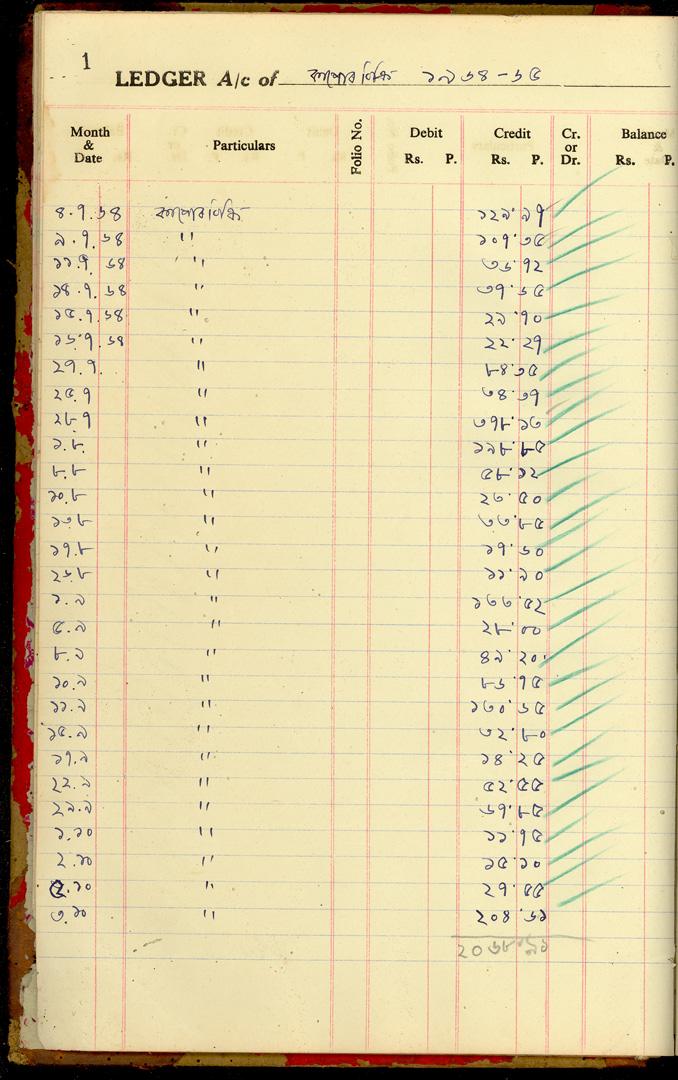 1
LEDGER A/c of ১৯৬৪-৬৫
Month & Date Particulars Folio No. Debit Rs. P. Credit Rs. P. Cr. or Dr. Balance Rs. P.
৪.৭.৬৪ ১২৯.৯৭
৯.৭.৬৪ " ১০৭.৩৫
১১.৭.৬৪ " ৩৬.৭২
১৪.৭.৬৪ " ৩৭.৬৫
১৫.৭.৬৪ " ২৯.৭০
১৬.৭.৬৪ " ২২.২৭
২৭.৭. " ৮৪.৩৫
২৫.৭ " ৩৪.৩৭
২৮.৭ " ৩৭৮.১৩
১.৮. " ১৯৮.৮৫
৮.৮ " ৫৮.১২
১০.৮ " ২৩.৫০
১৩.৮ " ৩৩.৮৫
১৭.৮ " ১৭.৬০
২৬.৮ " ১১.৯০
১.৯ " ১৩৩.৫২
৫.৯ " ২৮.০০
৮.৯ " ৪৯.২০
১০.৯ " ৮৬.৭৫
১১.৯ " ১৩০.৬৫
১৫.৯ " ৩২.৮০
১৭.৯ " ১৪.২৫
২২.৯ " ৫২.৫৫
২৯.৯ " ৬৭.৮৫
১.১০ " ১১.৭৫
২.১০ " ১৫.১০
২.১০ " ২৭.৫৫
৩.১০ " ২০৪.৬১